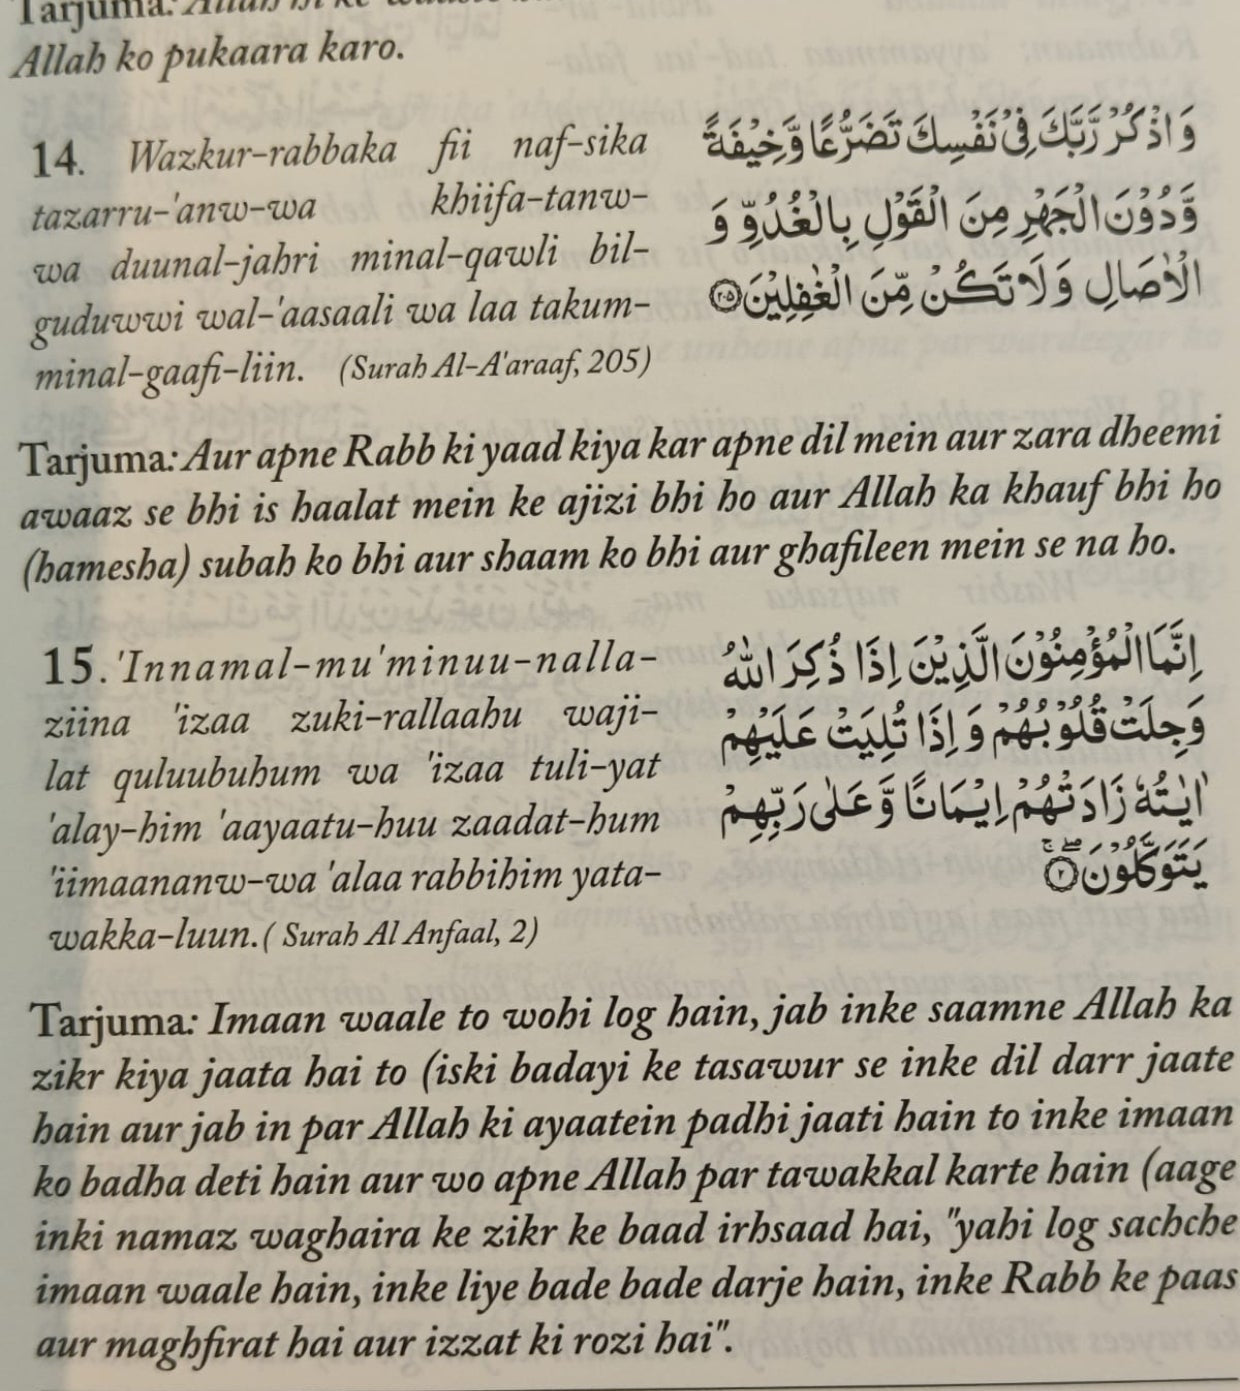 Tarjuma: Allah hi ke
Allah ko pukaara karo.
14. Wazkur-rabbaka fii naf-sika
tazarru-'anw-wa khiifa-tanw-
wa duunal-jahri minal-qawli bil-
guduwwi wal-'aasaali wa laa takum-
minal-gaafi-liin. (Surah Al-A'araaf, 205)
وَاذْكُرْ رَّبَّكَ فِیْ نَفْسِكَ تَضَرُّعًا وَّخِیْفَةً
وَّدُوْنَ الْجَهْرِ مِنَ الْقَوْلِ بِالْغُدُوِّ وَ
الْاٰصَالِ وَلَا تَكُنْ مِّنَ الْغٰفِلِیْنَ ۝۲۰۵
Tarjuma: Aur apne Rabb ki yaad kiya kar apne dil mein aur zara dheemi
awaaz se bhi is haalat mein ke ajizi bhi ho aur Allah ka khauf bhi ho
(hamesha) subah ko bhi aur shaam ko bhi aur ghafileen mein se na ho.
15. 'Innamal-mu'minuu-nalla-
ziina 'izaa zuki-rallaahu waji-
lat quluubuhum wa 'izaa tuli-yat
'alay-him 'aayaatu-huu zaadat-hum
'iimaananw-wa 'alaa rabbihim yata-
wakka-luun.( Surah Al Anfaal, 2)
اِنَّمَا الْمُؤْمِنُوْنَ الَّذِیْنَ اِذَا ذُكِرَ اللّٰهُ
وَجِلَتْ قُلُوْبُهُمْ وَ اِذَا تُلِیَتْ عَلَیْهِمْ
اٰیٰتُهٗ زَادَتْهُمْ اِیْمَانًا وَّ عَلٰی رَبِّهِمْ
یَتَوَكَّلُوْنَ ۝۲
Tarjuma: Imaan waale to wohi log hain, jab inke saamne Allah ka
zikr kiya jaata hai to (iski badayi ke tasawur se inke dil darr jaate
hain aur jab in par Allah ki ayaatein padhi jaati hain to inke imaan
ko badha deti hain aur wo apne Allah par tawakkal karte hain (aage
inki namaz waghaira ke zikr ke baad irhsaad hai, "yahi log sachche
imaan waale hain, inke liye bade bade darje hain, inke Rabb ke paas
aur maghfirat hai aur izzat ki rozi hai".